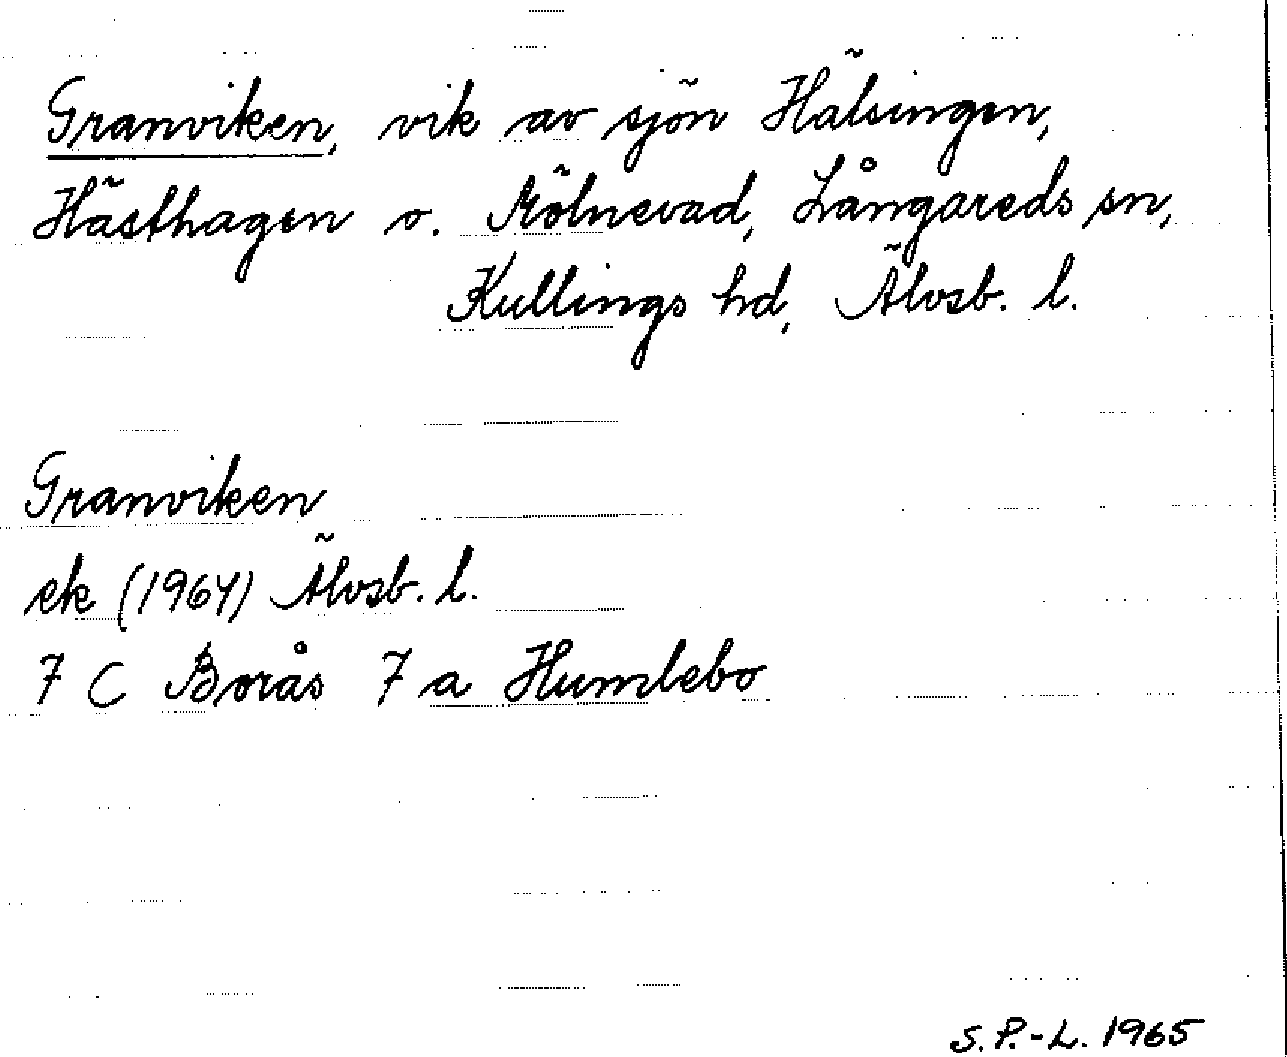 Granviken, vik av sjön Hälsingen,
Hästhagen o. Mölnevad, Långareds sn,
Kullings hd, Älvsb. l.
Granviken
ek (1964) Älvsb. l.
7 C Borås 7 a Humlebo
S. P.-L. 1965